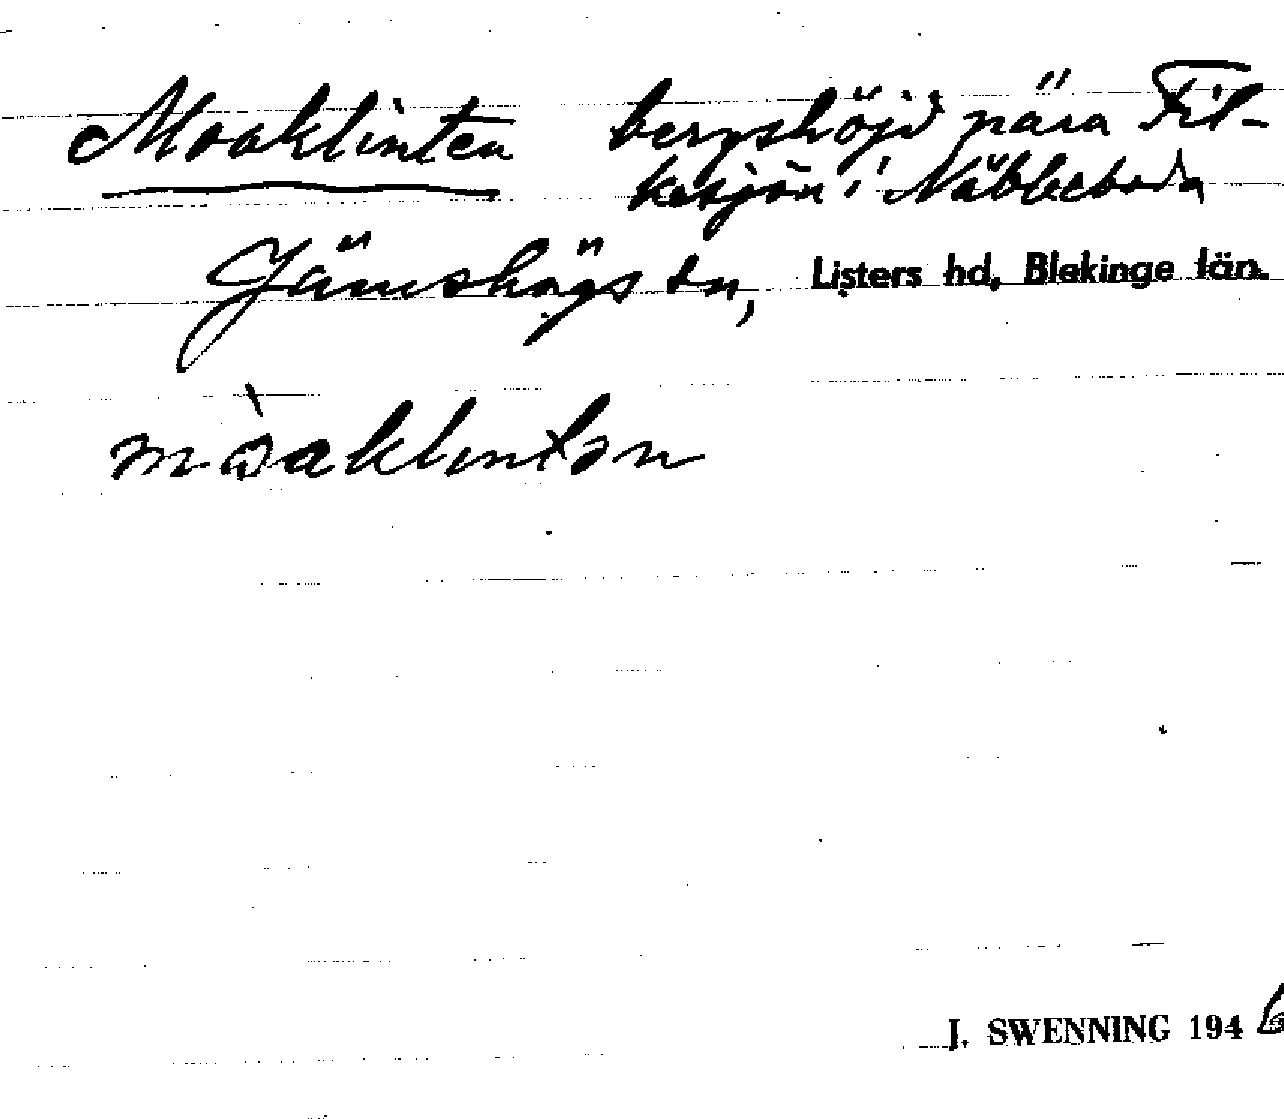 Moaklinten bergshöjd nära Fil-
kesjön i Näbbeboda
Jämshögs sn, Listers hd, Blekinge län.
mòaklintən
J. SWENNING 1946